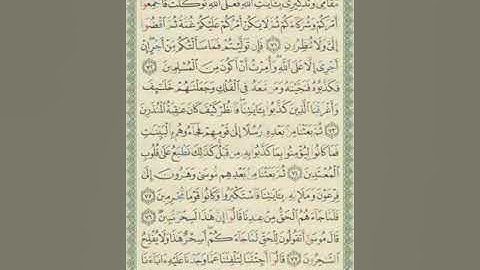 مَقَامِى وَتَذْكِيرِى بِـَٔايَـٰتِ ٱللَّهِ فَعَلَى ٱللَّهِ تَوَكَّلْتُ فَأَجْمِعُوٓا۟
أَمْرَكُمْ وَشُرَكَآءَكُمْ ثُمَّ لَا يَكُنْ أَمْرُكُمْ عَلَيْكُمْ غُمَّةً ثُمَّ ٱقْضُوٓا۟
إِلَىَّ وَلَا تُنظِرُونِ ٧١ فَإِن تَوَلَّيْتُمْ فَمَا سَأَلْتُكُم مِّنْ أَجْرٍ إِنْ
أَجْرِىَ إِلَّا عَلَى ٱللَّهِ وَأُمِرْتُ أَنْ أَكُونَ مِنَ ٱلْمُسْلِمِينَ ٧٢
فَكَذَّبُوهُ فَنَجَّيْنَـٰهُ وَمَن مَّعَهُۥ فِى ٱلْفُلْكِ وَجَعَلْنَـٰهُمْ خَلَـٰٓئِفَ
وَأَغْرَقْنَا ٱلَّذِينَ كَذَّبُوا۟ بِـَٔايَـٰتِنَا فَٱنظُرْ كَيْفَ كَانَ عَـٰقِبَةُ ٱلْمُنذَرِينَ
٧٣ ثُمَّ بَعَثْنَا مِنۢ بَعْدِهِۦ رُسُلًا إِلَىٰ قَوْمِهِمْ فَجَآءُوهُم بِٱلْبَيِّنَـٰتِ
فَمَا كَانُوا۟ لِيُؤْمِنُوا۟ بِمَا كَذَّبُوا۟ بِهِۦ مِن قَبْلُ كَذَٰلِكَ نَطْبَعُ عَلَىٰ قُلُوبِ
ٱلْمُعْتَدِينَ ٧٤ ثُمَّ بَعَثْنَا مِنۢ بَعْدِهِم مُّوسَىٰ وَهَـٰرُونَ إِلَىٰ
فِرْعَوْنَ وَمَلَإِي۟هِۦ بِـَٔايَـٰتِنَا فَٱسْتَكْبَرُوا۟ وَكَانُوا۟ قَوْمًا مُّجْرِمِينَ ٧٥
فَلَمَّا جَآءَهُمُ ٱلْحَقُّ مِنْ عِندِنَا قَالُوٓا۟ إِنَّ هَـٰذَا لَسِحْرٌ مُّبِينٌ ٧٦
قَالَ مُوسَىٰٓ أَتَقُولُونَ لِلْحَقِّ لَمَّا جَآءَكُمْ أَسِحْرٌ هَـٰذَا وَلَا يُفْلِحُ
ٱلسَّـٰحِرُونَ ٧٧ قَالُوٓا۟ أَجِئْتَنَا لِتَلْفِتَنَا عَمَّا وَجَدْنَا عَلَيْهِ ءَابَآءَنَا